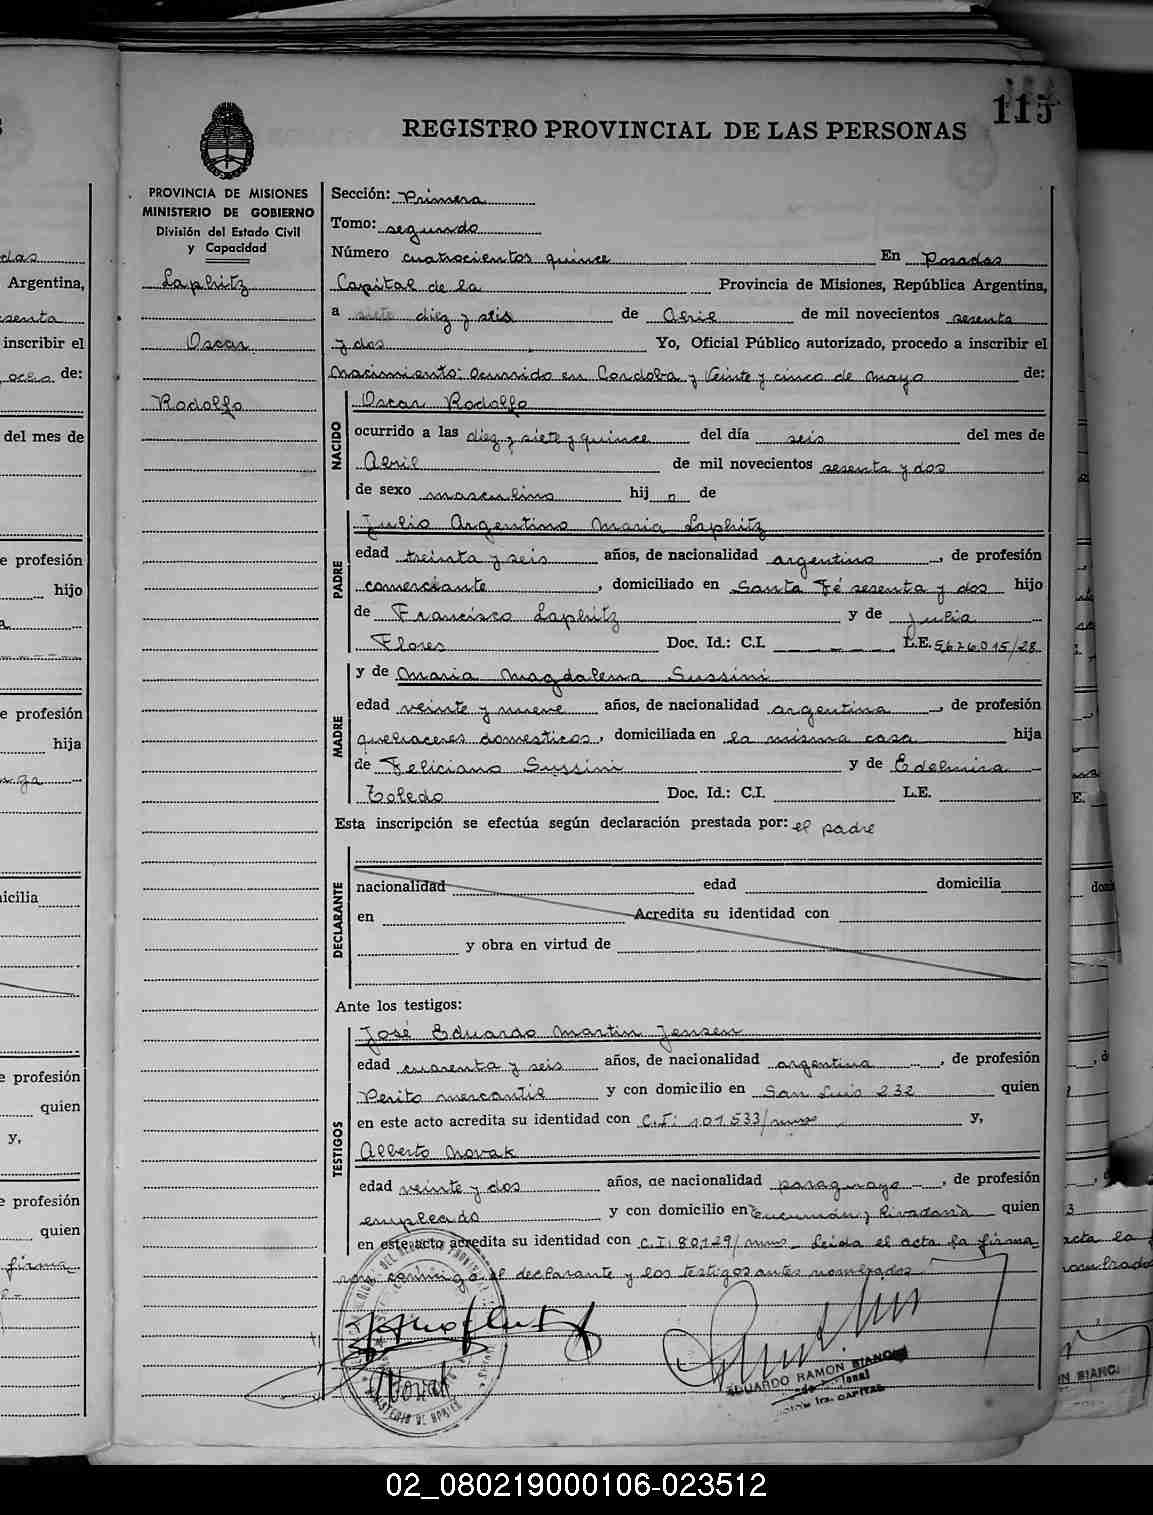 115
REGISTRO PROVINCIAL DE LAS PERSONAS
PROVINCIA DE MISIONES
MINISTERIO DE GOBIERNO
División del Estado Civil
y Capacidad
Laphitz
Oscar
Rodolfo
Sección: Primera
Tomo: segundo
Número cuatrocientos quince En Posadas
Capital de la Provincia de Misiones, República Argentina,
a siete diez y seis de Abril de mil novecientos sesenta
y dos Yo, Oficial Público autorizado, procedo a inscribir el
Nacimiento: ocurrido en Cordoba y Veinte y cinco de mayo de:
NACIDO
Oscar Rodolfo
ocurrido a las diez y siete y quince del día seis del mes de
Abril de mil novecientos sesenta y dos
de sexo masculino hijo de
PADRE
Julio Argentino Maria Laphitz
edad treinta y seis años, de nacionalidad argentino, de profesión
comerciante, domiciliado en Santa Fé sesenta y dos hijo
de Francisco Laphitz y de Julia
Flores Doc. Id.: C.I. L.E. 5626015/28
MADRE
y de Maria Magdalena Sussini
edad veinte y nueve años, de nacionalidad argentina, de profesión
quehaceres domesticos, domiciliada en la misma casa hija
de Feliciano Sussini y de Edelmira
Toledo Doc. Id.: C.I. L.E.
Esta inscripción se efectúa según declaración prestada por: el padre
DECLARANTE
nacionalidad edad domicilia
en Acredita su identidad con
y obra en virtud de
Ante los testigos:
TESTIGOS
José Eduardo Martin Jensen
edad cuarenta y seis años, de nacionalidad argentina, de profesión
Perito mercantil y con domicilio en San Luis 232 quien
en este acto acredita su identidad con C.I: 101533/mnes y,
Alberto Novak
edad veinte y dos años, de nacionalidad paraguayo, de profesión
empleado y con domicilio en Tucumán y Rivadavia quien
en este acto acredita su identidad con C.I: 80129/mnes Leida el acta la firma
ron conmigo el declarante y los testigos antes nombrados
Novak
EDUARDO RAMON BIANCHI
CAPITAL
das
Argentina,
esenta
inscribir el
ocho de:
del mes de
e profesión
hijo
e profesión
hija
icilia
e profesión
quien
y,
e profesión
quien
firma
02_080219000106-023512